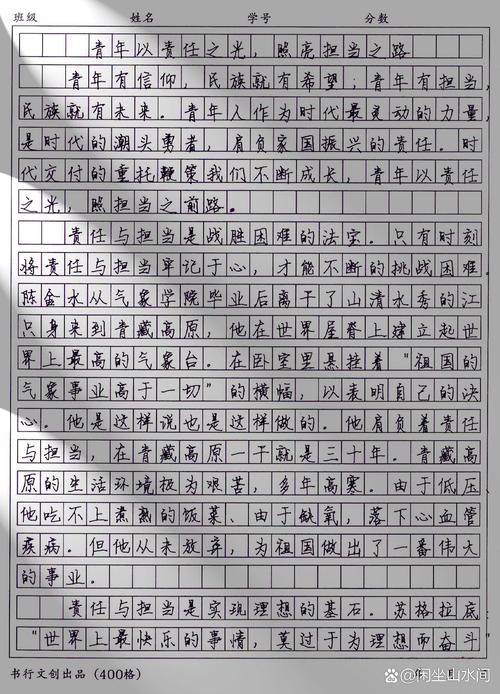 班级 姓名 学号 分数
青年以责任之光，照亮担当之路
青年有信仰，民族就有希望；青年有担当，
民族就有未来。青年人作为时代最灵动的力量，
是时代的潮头勇者，肩负家国振兴的责任。时
代交付的重托鞭策我们不断成长，青年以责任
之光，照担当之前路。
责任与担当是战胜困难的法宝。只有时刻
将责任与担当牢记于心，才能不断的挑战困难。
陈金水从气象学院毕业后离开了山清水秀的江
只身来到青藏高原，他在世界屋脊上建立起世
界上最高的气象台。在卧室里悬挂着“祖国的
气象事业高于一切”的横幅，以表明自己的决
心。他是这样说也是这样做的。他肩负着责任
与担当，在青藏高原一干就是三十年。青藏高
原的生活环境极为艰苦，多年高寒。由于低压、
他吃不上煮熟的饭菜、由于缺氧，落下心血管
疾病。但他从未放弃，为祖国做出了一番伟大
的事业。
责任与担当是实现理想的基石。苏格拉底：
“世界上最快乐的事情，莫过于为理想而奋斗”
书行文创出品（400格） 年 月 日
@闲坐山水间